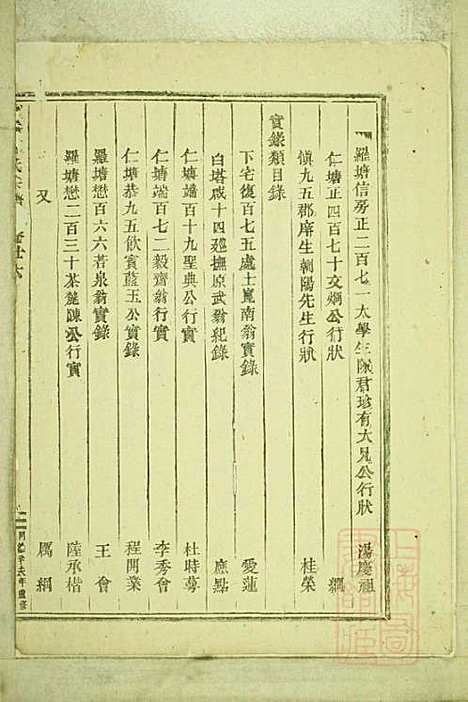 羅塘信房正二百七一太學生陳君珍有大兄公行狀　湯慶祖
仁塘正四百七十文炯公行狀　綱
慎九五郡庠生朝陽先生行狀　桂榮
實錄類目錄
下宅復百七五處士嵬南翁實錄　愛蓮
白塔咸十四廵撫原武翁紀錄　應點
仁塘端百十九聖典公行實　杜時芳
仁塘端百七二毅齋翁行實　李秀會
仁塘恭九五飲賓藍玉公實錄　程開業
羅塘懋百六六若泉翁實錄　王會
羅塘懋二百三十茶麓陳公行實　陸承楷
又　厲綱
氏宗譜